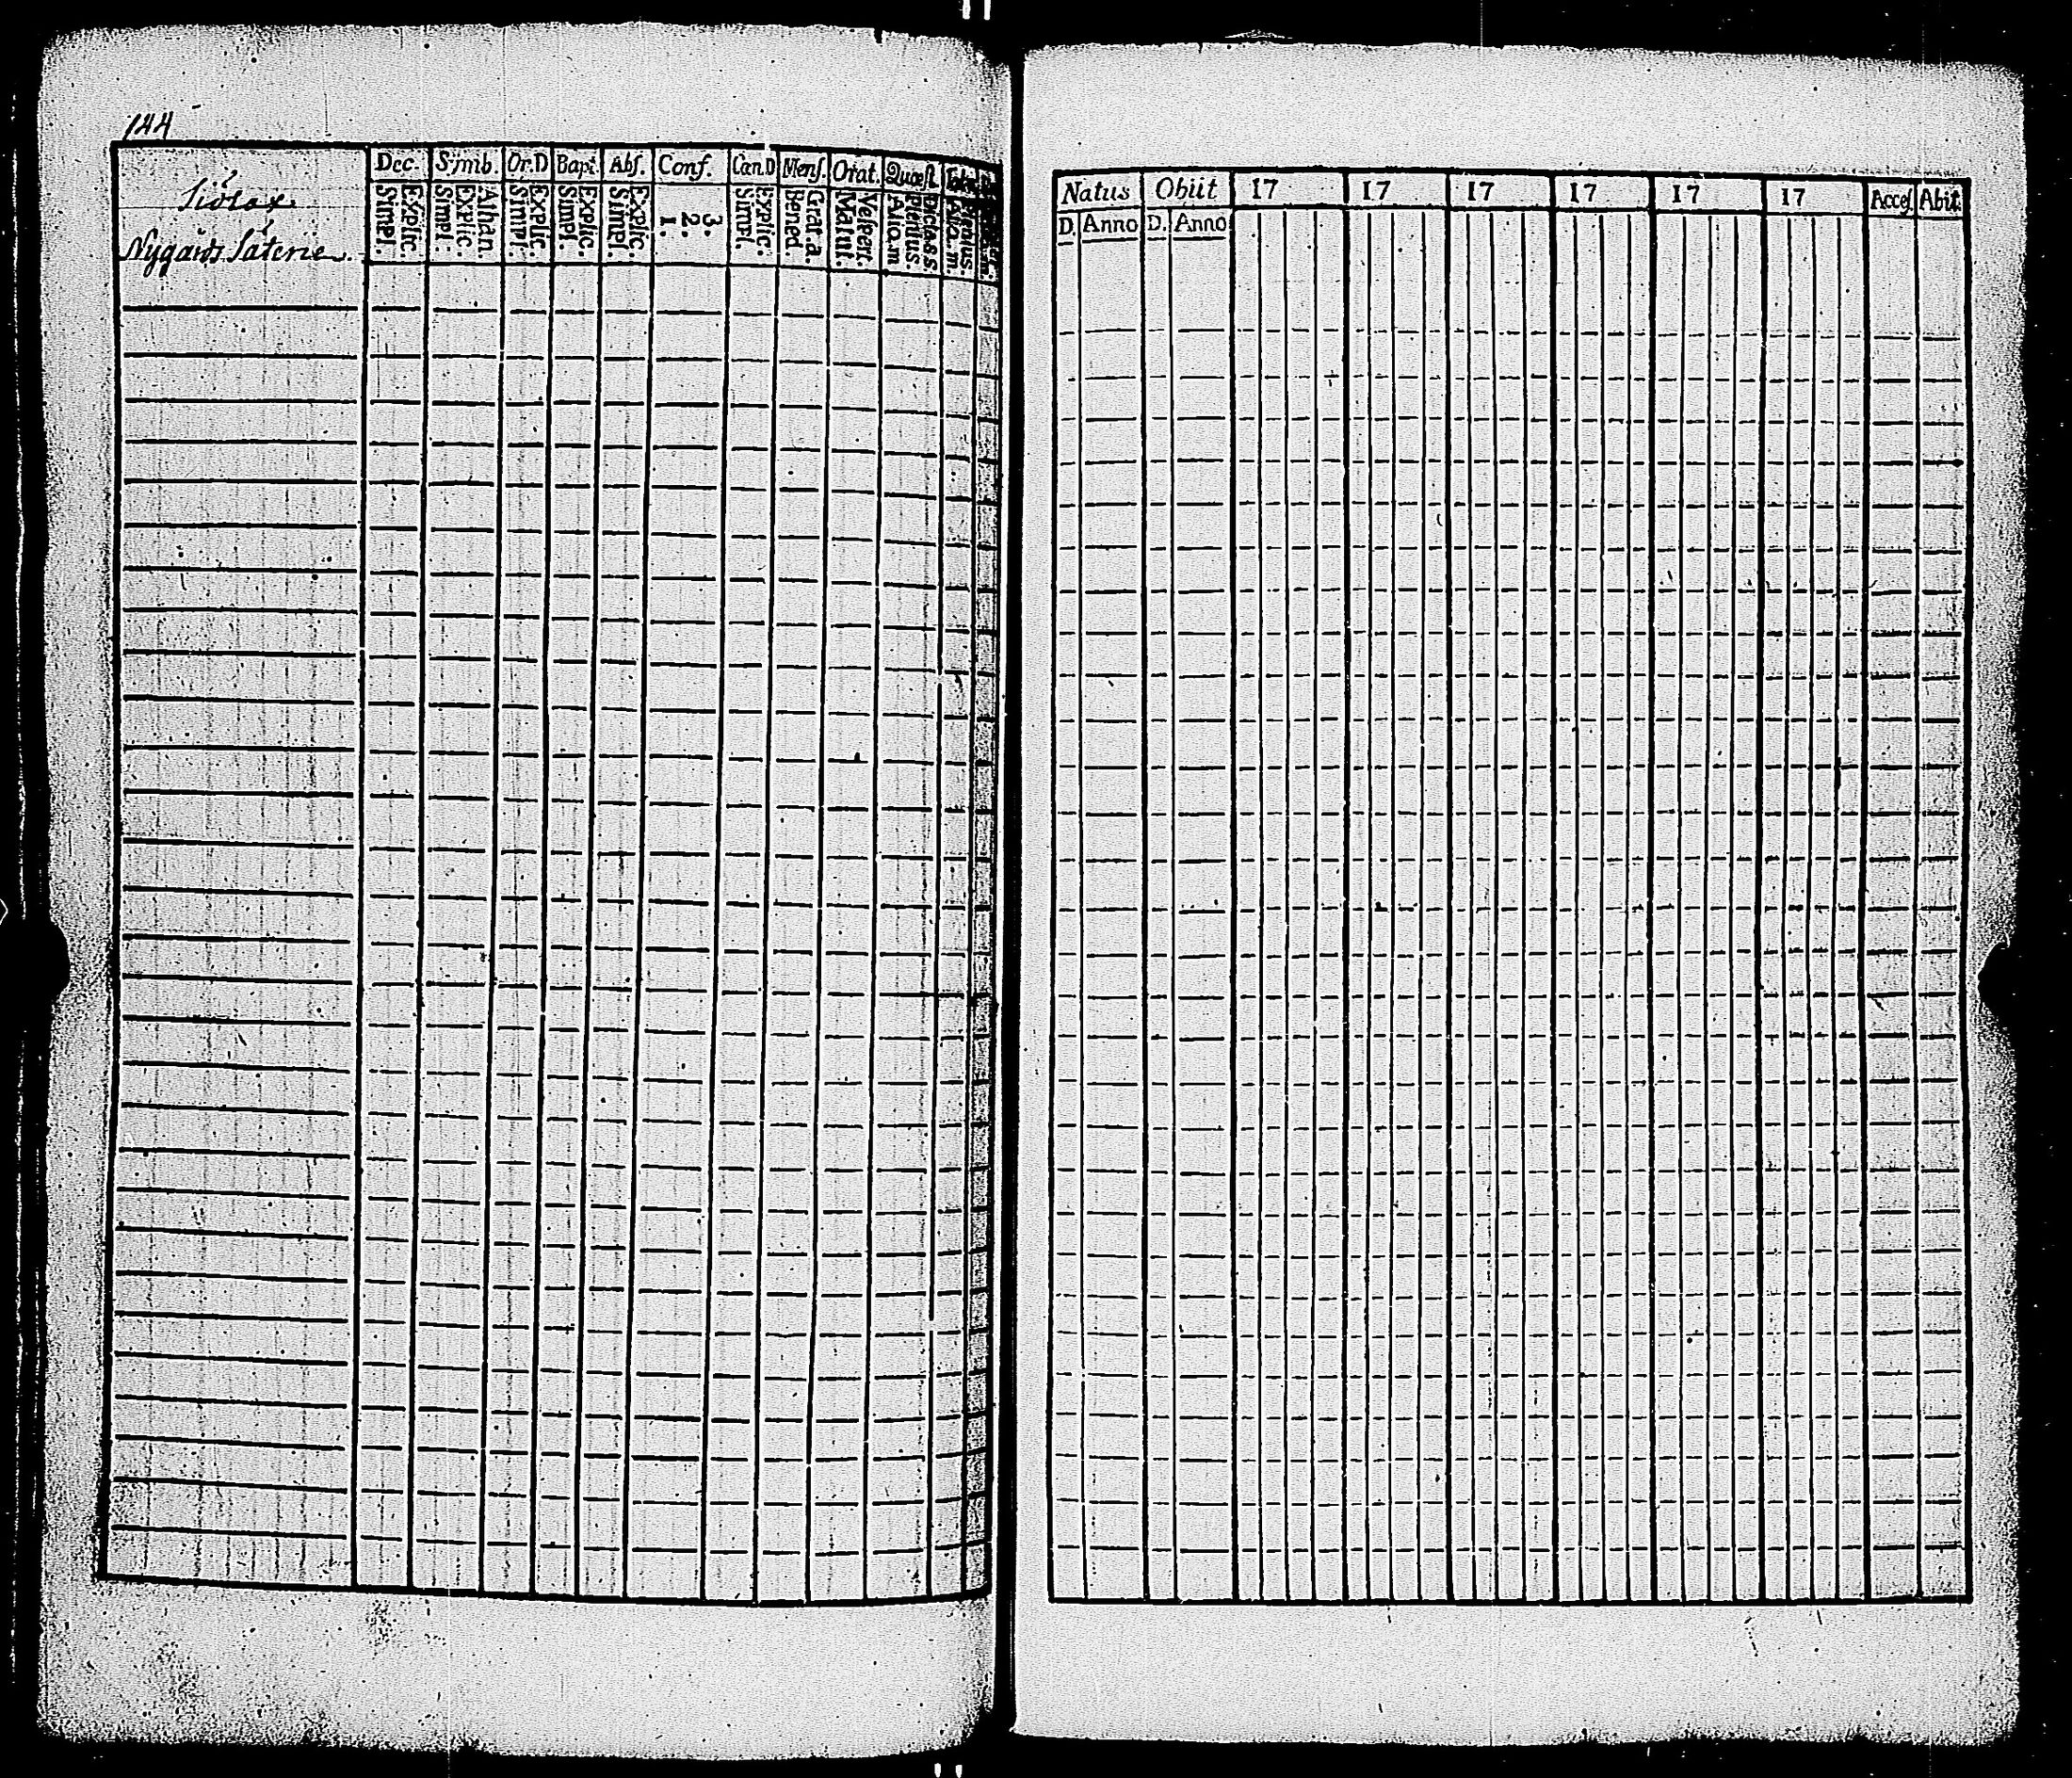 144
Dec. Symb. Or.D Bapt. Abſ. Conf. Can.D Menſ. Orat. Quæſt.
Siölax
Nygårds Säterie.
Explic. Simpl.
Athan. Explic. Simpl.
Explic. Simpl.
Explic. Simpl.
Explic. Simpl.
3. 2. 1.
Explic. Simpl.
Grat.a. Bened.
Veſpert. Matut.
Dicta s.s. Plenius Aliq.m
Natus Obiit 17 17 17 17 17 17 Acceſ. Abit.
D. Anno D. Anno